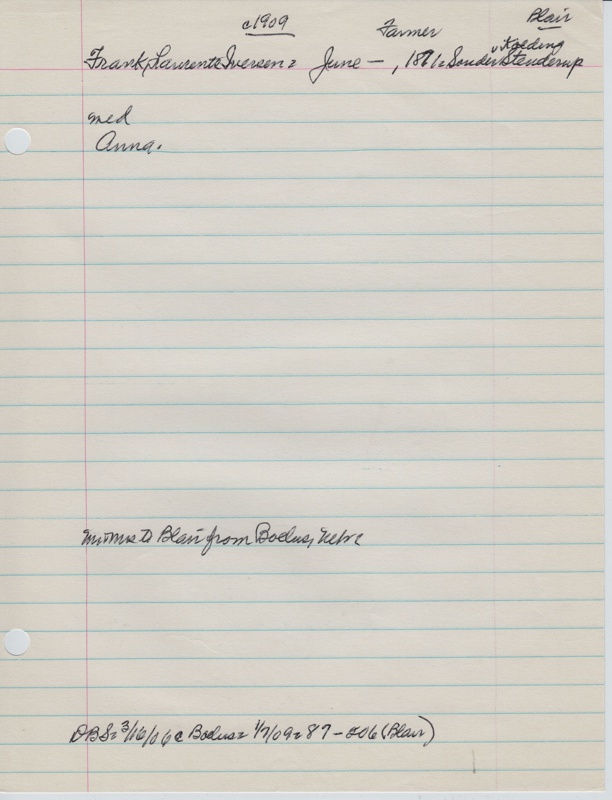 c1909 Farmer Blair
Frank, Laurents Iversen = June — , 1871 = Sonder Stenderup
Kolding
med
Anna.
Mr & Mrs to Blair from Boelus, Nebr
DBS = 3/16/06 @ Boelus = 1/7/09 = 87 - 206 (Blair)